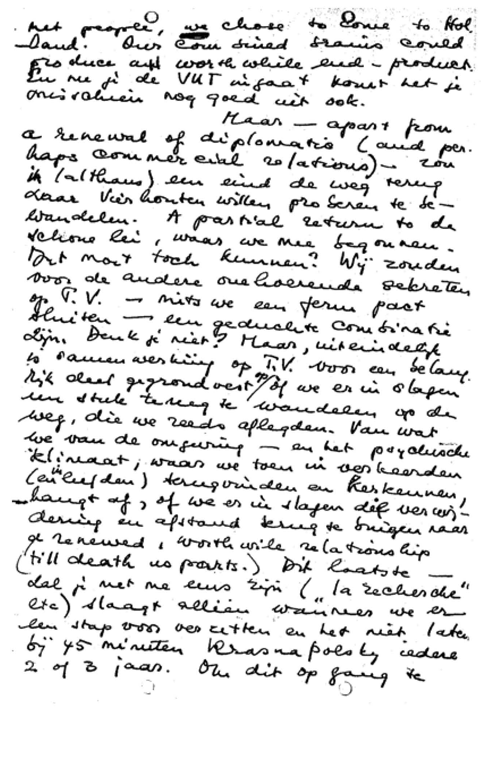 met people, we chose to come to Hol
land. Our combined brains could
produce a worth while end-product.
En nu je de VUT ingaat komt het je
misschien nog goed uit ook.
Maar — apart from
a renewal of diplomatic (and per-
haps commercial relations) — zou
ik (althans) een eind de weg terug
naar Vierhouten willen proberen te be-
wandelen. A partial return to de
schone lei, waar we mee begonnen.
Dit moet toch kunnen? Wij zouden
voor de andere onehoerende sekreten
op T.V. — mits we een ferm pact
sluiten — een geduchte combinatie
zijn. Denk je niet? Maar, uiteindelijk
is samenwerking op T.V. voor een belang
rijk deel gegrondvest op/of we er in slagen
een stuk terug te wandelen op de
weg, die we reeds aflegden. Van wat
we van de omgeving — en het psychische
klimaat, waar we toen in verkeerden
(en in leefden) terugvinden en herkennen,
hangt af, of we er in slagen die verwij-
dering en afstand terug te brengen naar
a renewed, worthwile relationship
(till death us parts.) Dit laatste —
zal je met me eens zijn („la recherche"
etc) slaagt alleen wanneer we er
een stap voor verzetten en het niet laten
bij 45 minuten Krasnapolsky iedere
2 of 3 jaar. Om dit op gang te